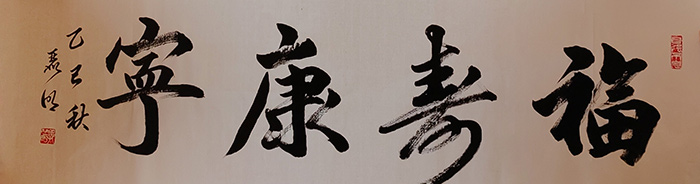 福寿康寧
乙巳秋